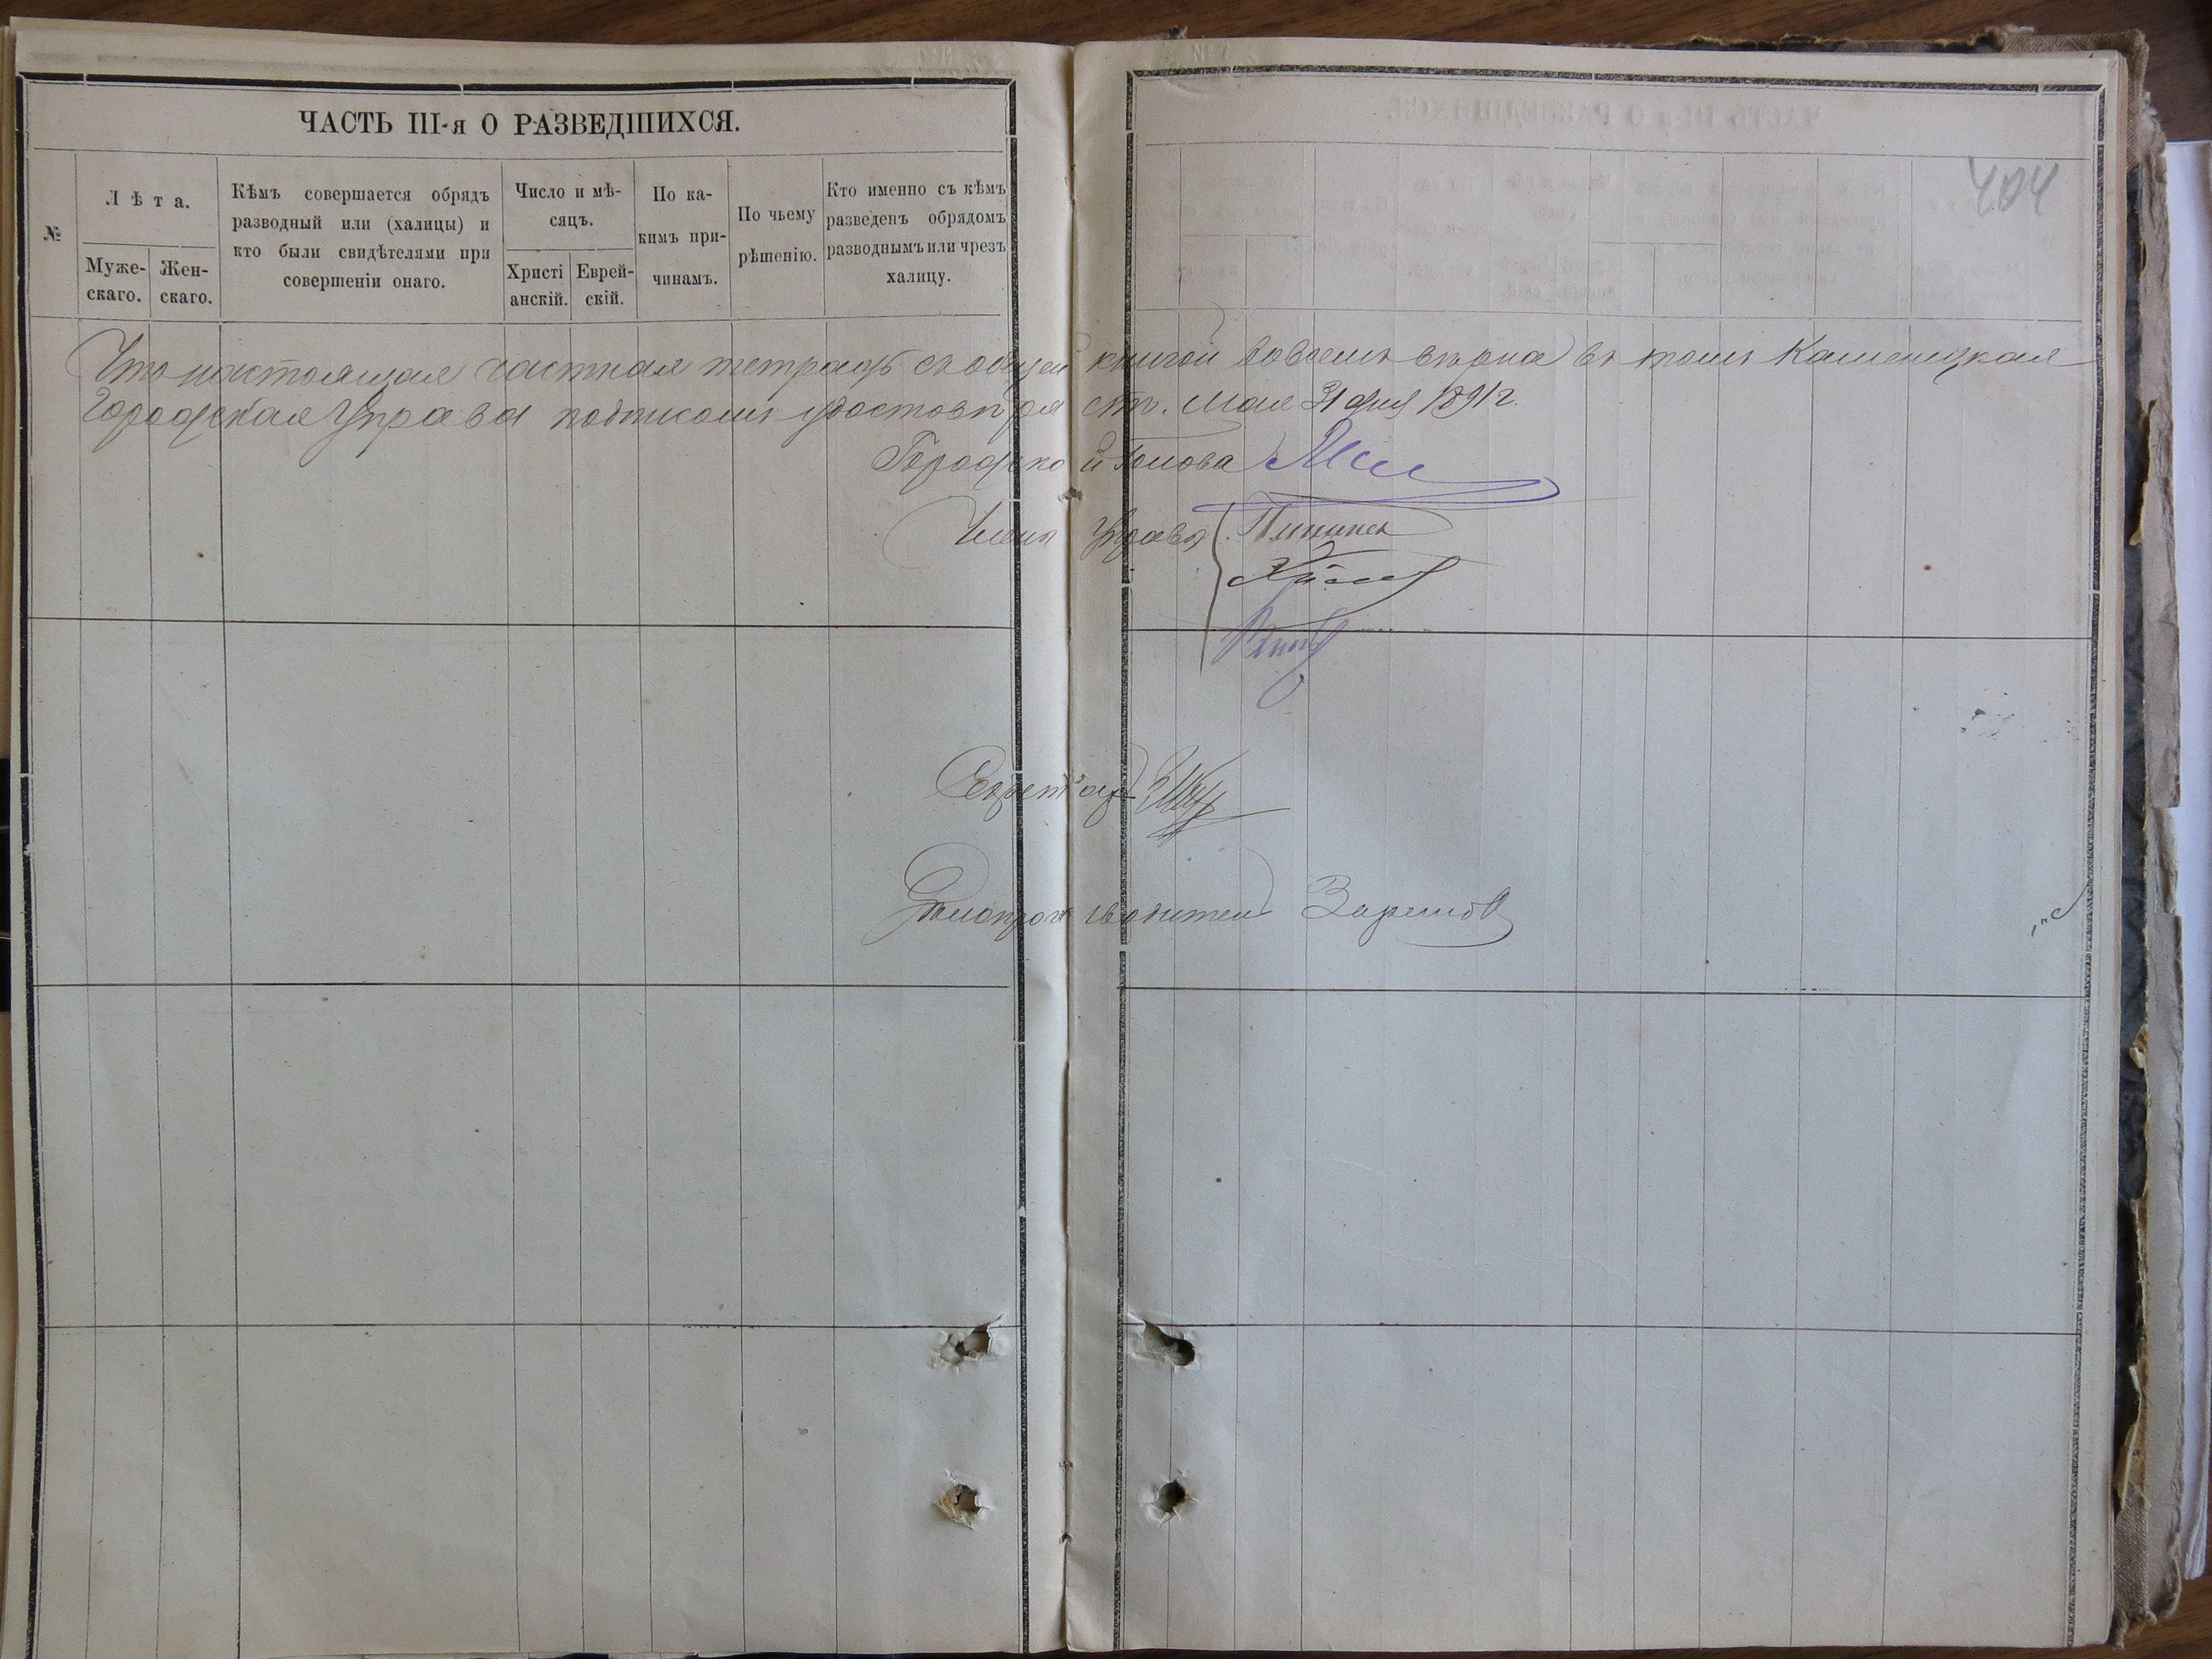 ЧАСТЬ III-я О РАЗВЕДШИХСЯ.
№
Лѣта.
Муже-
скаго.
Жен-
скаго.
Кѣмъ совершается обрядъ
разводный или (халицы) и
кто были свидѣтелями при
совершеніи онаго.
Число и мѣ-
сяцъ.
Христі
анскій.
Еврей-
скій.
По ка-
кимъ при-
чинамъ.
По чьему
рѣшенію.
Кто именно съ кѣмъ
разведенъ обрядомъ
разводнымъ или чрезъ
халицу.
404
Что настоящая частная тетрадь съ общей книгой во всемъ вѣрна въ томъ Каменецкая
Городская Управа подписомъ удостовѣряетъ. Мая 31 дня 1891 г.
Городской Голова
Члены Управы
Секретарь
Дѣлопроизводитель